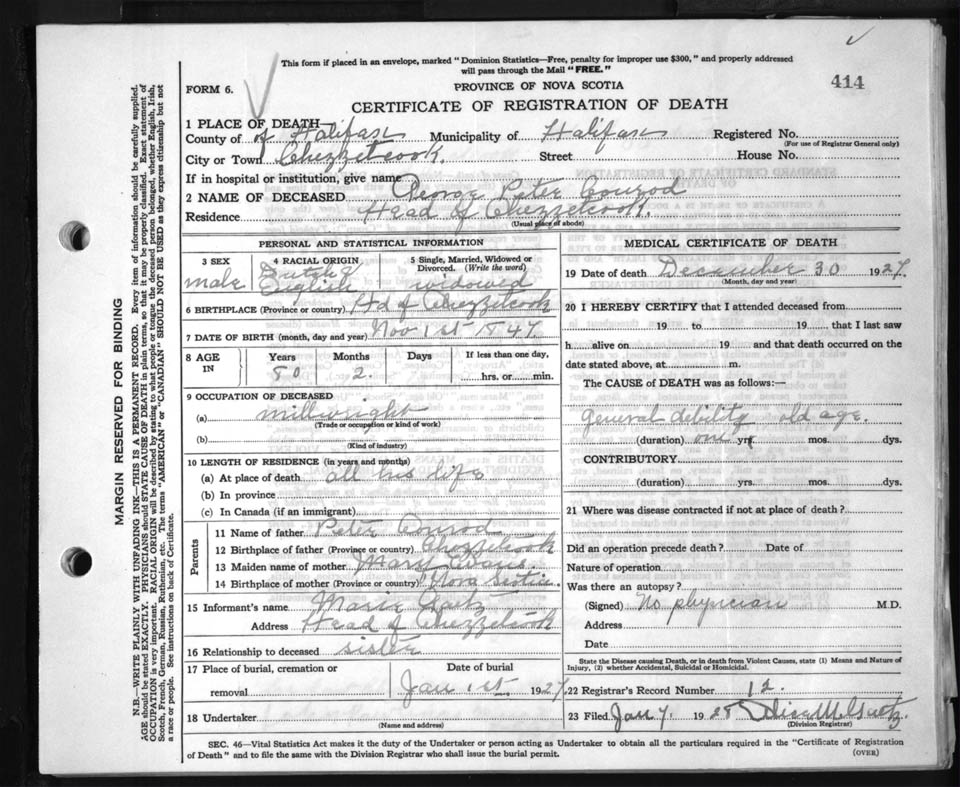 This form if placed in an envelope, marked "Dominion Statistics—Free, penalty for improper use $300," and properly addressed
will pass through the Mail "FREE."
414
FORM 6.
PROVINCE OF NOVA SCOTIA
CERTIFICATE OF REGISTRATION OF DEATH
1 PLACE OF DEATH
County of of Halifax Municipality of Halifax Registered No.
(For use of Registrar General only)
City or Town Chezzetcook. Street House No.
If in hospital or institution, give name
2 NAME OF DECEASED George Peter Conrod
Residence Head of Chezzetcook.
(Usual place of abode)
PERSONAL AND STATISTICAL INFORMATION
3 SEX male
4 RACIAL ORIGIN Dutch & English
5 Single, Married, Widowed or Divorced. (Write the word) widowed
6 BIRTHPLACE (Province or country) Hd of Chezzetcook
7 DATE OF BIRTH (month, day and year) Nov 1st 1847.
8 AGE IN Years 80 Months 2. Days If less than one day, hrs. or min.
9 OCCUPATION OF DECEASED
(a) millwright
(Trade or occupation or kind of work)
(b)
(Kind of industry)
10 LENGTH OF RESIDENCE (in years and months)
(a) At place of death all his life
(b) In province
(c) In Canada (if an immigrant)
Parents
11 Name of father Peter Conrod
12 Birthplace of father (Province or country) Chezzetcook
13 Maiden name of mother Mary Evans.
14 Birthplace of mother (Province or country) Nova Scotia
15 Informant's name Maria Gaetz
Address Head of Chezzetcook
16 Relationship to deceased sister
17 Place of burial, cremation or removal
Date of burial
Jan 1st 1927
18 Undertaker
(Name and address)
MEDICAL CERTIFICATE OF DEATH
19 Date of death December 30 1927.
(Month, day and year)
20 I HEREBY CERTIFY that I attended deceased from
19 to 19, that I last saw
h alive on 19 and that death occurred on the
date stated above, at m.
The CAUSE of DEATH was as follows:—
General debility old age.
(duration) one yrs. mos. dys.
CONTRIBUTORY
(duration) yrs. mos. dys.
21 Where was disease contracted if not at place of death?
Did an operation precede death? Date of
Nature of operation
Was there an autopsy?
(Signed) No physician M.D.
Address
Date
State the Disease causing Death, or in death from Violent Causes, state (1) Means and Nature of
Injury, (2) whether Accidental, Suicidal or Homicidal.
22 Registrar's Record Number 12.
23 Filed Jan 7. 1928
(Division Registrar)
SEC. 46—Vital Statistics Act makes it the duty of the Undertaker or person acting as Undertaker to obtain all the particulars required in the "Certificate of Registration
of Death" and to file the same with the Division Registrar who shall issue the burial permit.
(OVER)
MARGIN RESERVED FOR BINDING
N.B.—WRITE PLAINLY WITH UNFADING INK—THIS IS A PERMANENT RECORD. Every item of information should be carefully supplied.
AGE should be stated EXACTLY. PHYSICIANS should STATE CAUSE OF DEATH in plain terms, so that it may be properly classified. Exact statement of
OCCUPATION is very important. RACIAL ORIGIN will be described by stating to what people or tongue the deceased person belonged, whether English, Irish,
Scotch, French, German, Russian, Ruthenian, etc. The terms "AMERICAN" or "CANADIAN" SHOULD NOT BE USED as they express citizenship but not
a race or people. See instructions on back of Certificate.